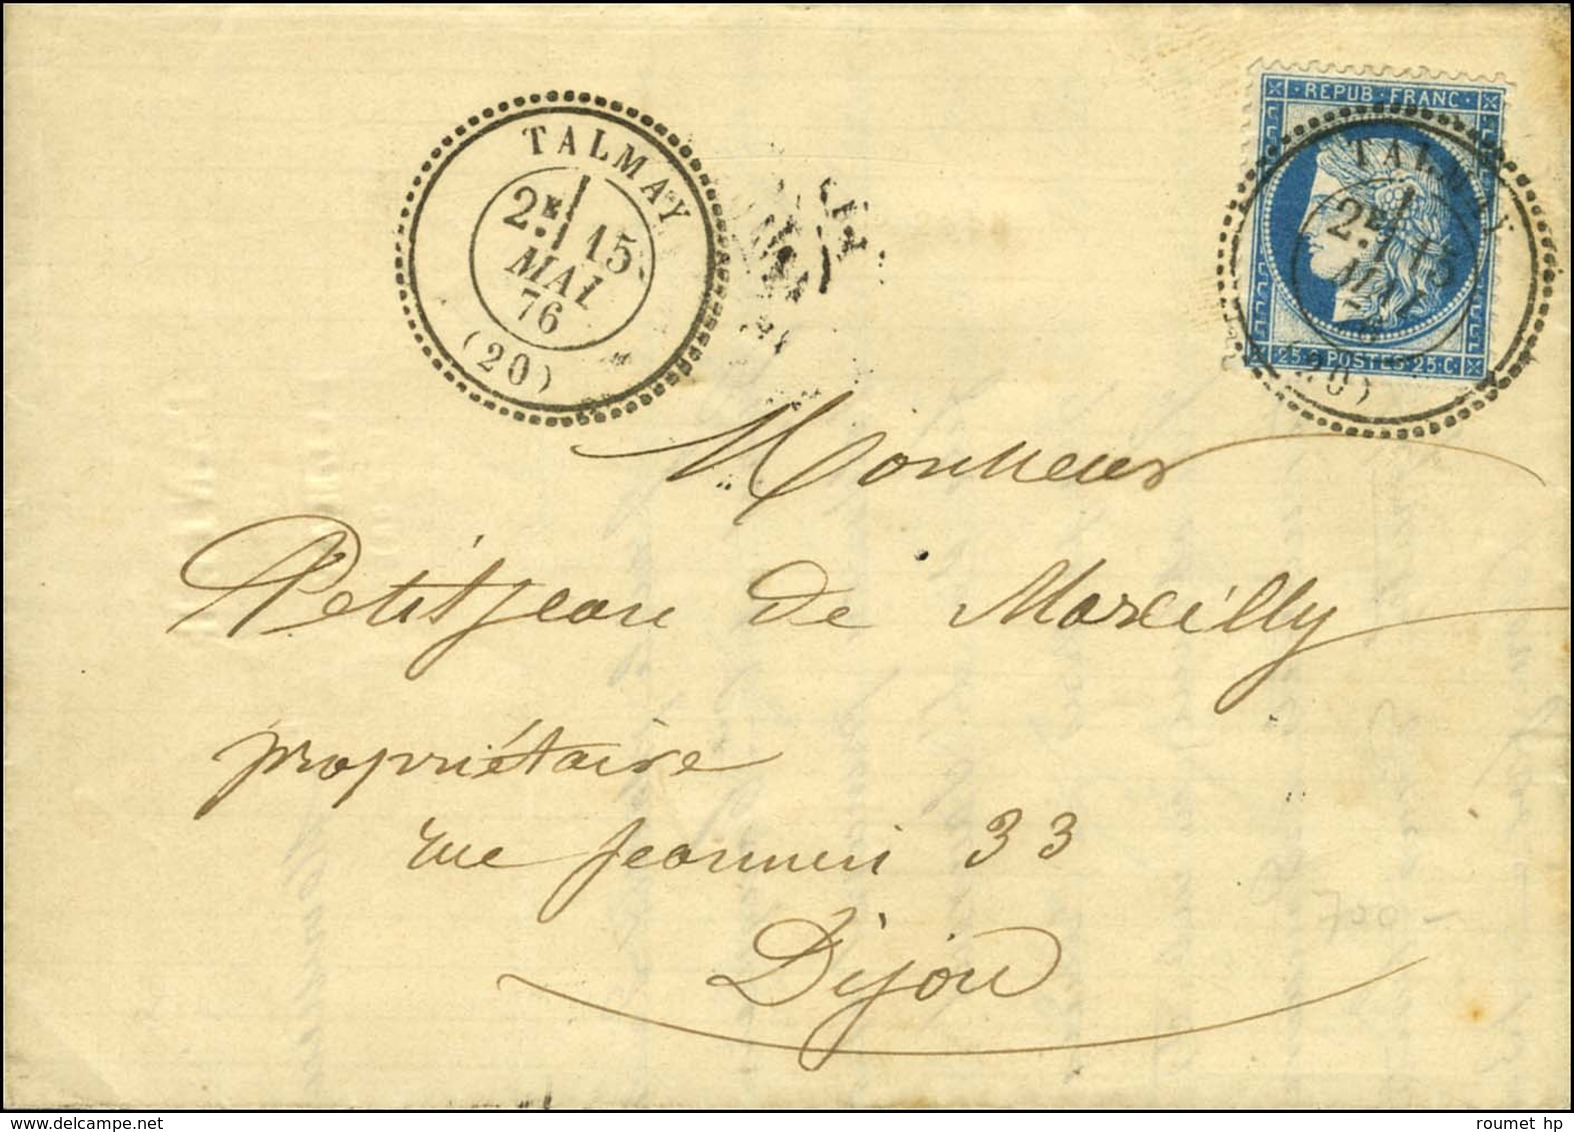 REPUB · FRANC ·
TALMAY
2E 15
MAI
76
(20)
TALMAY
2E 15
MAI
76
(20)
25 · POSTES · 25 · C ·
Monsieur
Petitjean de Marcilly
propriétaire
rue Jeannin 33
Dijon
700 -
delcampe.net
roumet hp